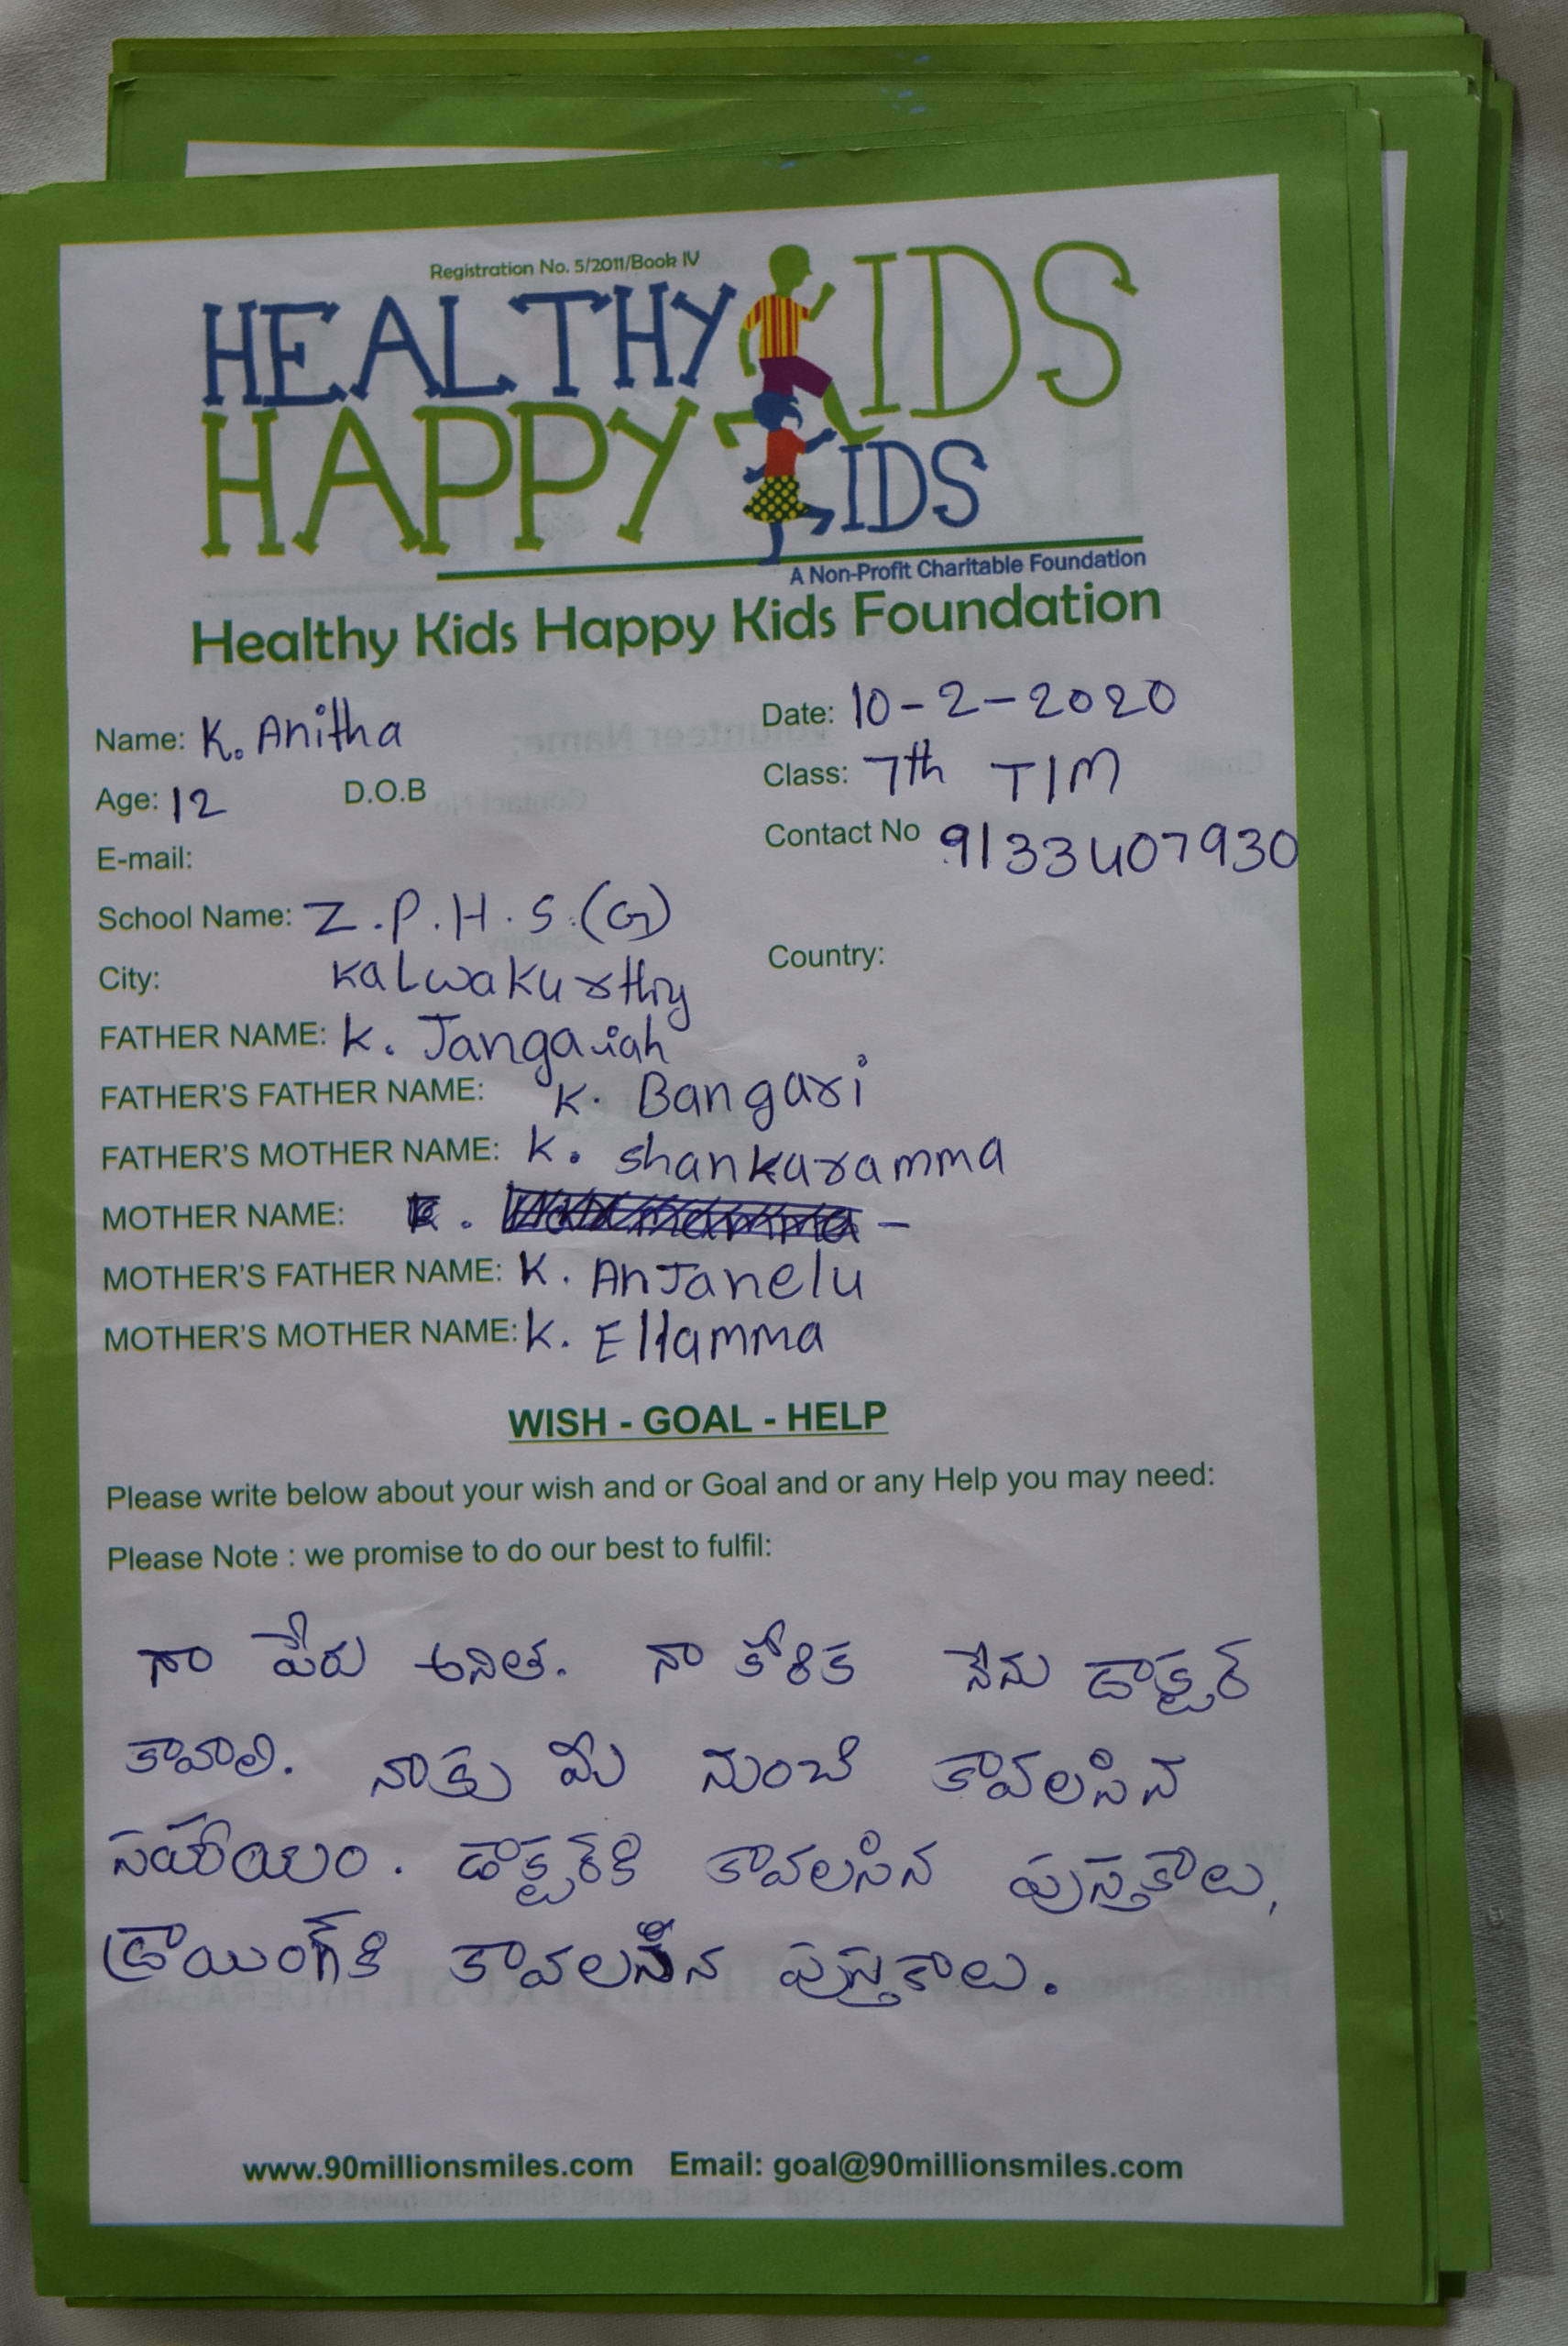 Registration No. 5/2011/Book IV
HEALTHY KIDS
HAPPY KIDS
A Non-Profit Charitable Foundation
Healthy Kids Happy Kids Foundation
Name: K. Anitha Date: 10-2-2020
Age: 12 D.O.B Class: 7th T/M
E-mail: Contact No 9133407930
School Name: Z.P.H.S.(G)
City: Kalwakurthy Country:
FATHER NAME: K. Jangaiah
FATHER'S FATHER NAME: K. Bangari
FATHER'S MOTHER NAME: K. Shankaramma
MOTHER NAME: K. -
MOTHER'S FATHER NAME: K. AnJanelu
MOTHER'S MOTHER NAME: K. Ellamma
WISH - GOAL - HELP
Please write below about your wish and or Goal and or any Help you may need:
Please Note : we promise to do our best to fulfil:
నా పేరు అనిత. నా కోరిక నేను డాక్టర్
కావాలి. నాకు మీ నుంచి కావలసిన
సహాయం. డాక్టర్‌కి కావలసిన పుస్తకాలు,
డ్రాయింగ్‌కి కావలసిన పుస్తకాలు.
www.90millionsmiles.com Email: goal@90millionsmiles.com